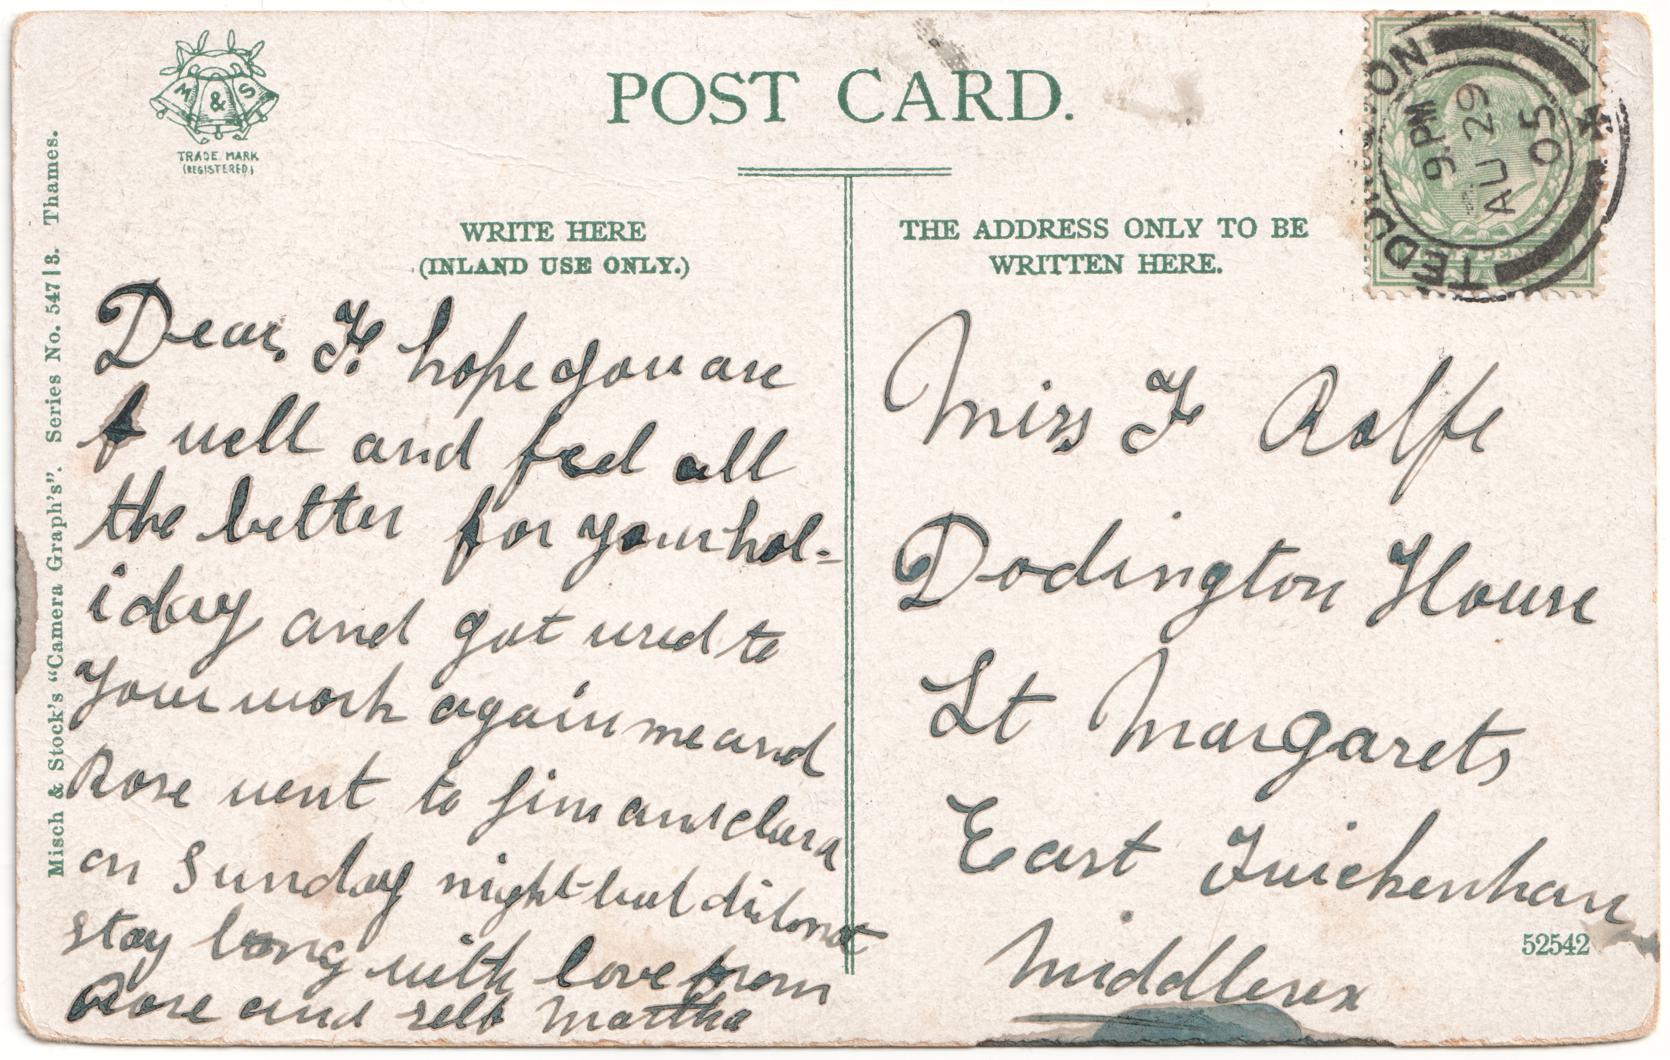 M & S
TRADE MARK
(REGISTERED)
POST CARD.
TEDDINGTON
9.PM
AU 29
05
Misch & Stock's "Camera Graph's". Series No. 547|3. Thames.
WRITE HERE
(INLAND USE ONLY.)
Dear, F. hope you are
well and feel all
the better for your hol-
iday and got used to
your work again me and
Rose went to Jim and clara
on Sunday night but did not
stay long with love from
Rose and self Martha
THE ADDRESS ONLY TO BE
WRITTEN HERE.
Miss F Rolfe
Dodington House
St Margarets
East Twickenham
Middlesex
52542